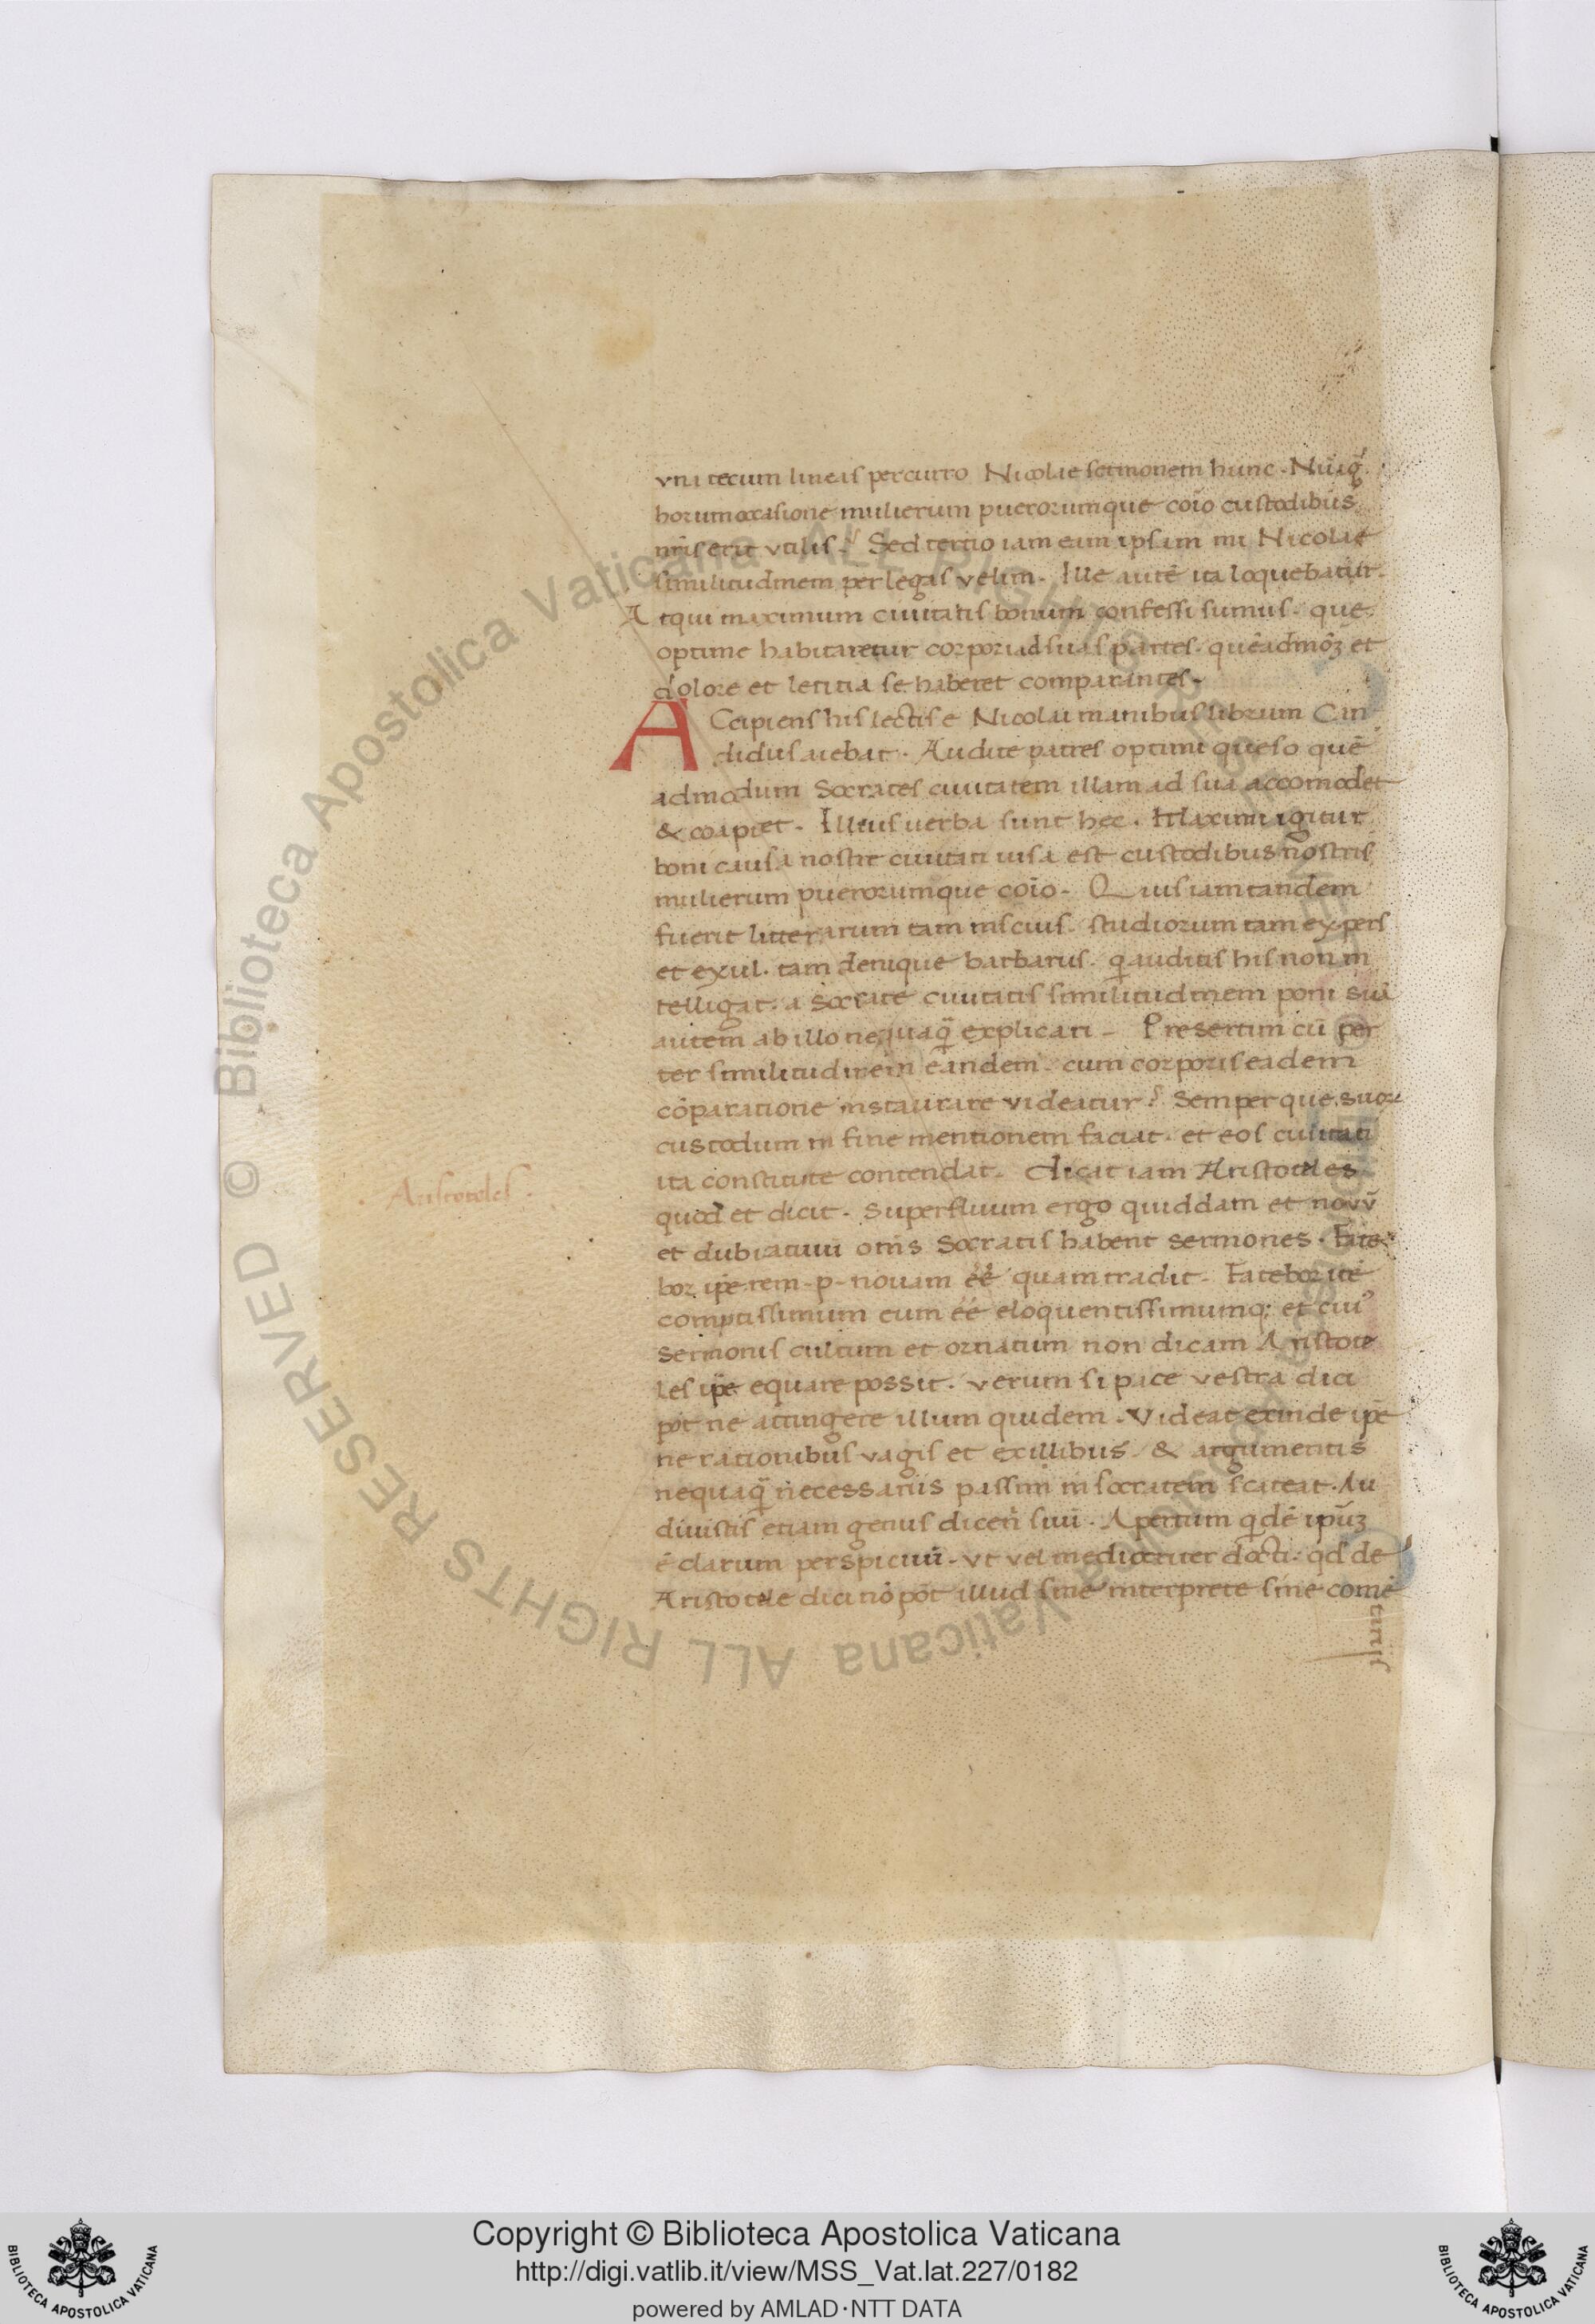 vna tecum lineas percurro Nicolae sermonem hunc . Nuiq̃
horum occasione mulierum puerorumque coĩo custodibus
nr̃is erit vtilis . Sed tertio iam eam ipsam mi Nicolae
similitudinem perlegas velim . Ille autē ita loquebatur .
Atqui maximum ciuitatis bonum confessi sumus . que
optime habitaretur corpori ad suas partes . quēadmoȝ et
dolore et letitia se haberet comparantes .
ACcipiens his lectis e Nicolai manibus librum Can
didus aiebat . Audite patres optimi queso quē
admodum Socrates ciuitatem illam ad sua accomodet
& coaptet . Illius uerba sunt hec . Maximi igitur
boni causa nostre ciuitati uisa est custodibus nostris
mulierum puerorumque coĩo . Quis iam tandem
fuerit litterarum tam inscius . studiorum tam expers
et exul . tam denique barbarus . q auditis his non in
telligat . a Socrate ciuitatis similitudinem poni suā
autem ab illo nequaq̃ explicari . Presertim cū per
ter similitudinem eandem . cum corporis eadem
cōparatione instaurare videatur ? Semperque suoꝝ
custodum in fine mentionem faciat . et eos ciuitati
ita constitute contendat . dicat iam Aristoteles
quod et dicit . Superfluum ergo quiddam et novū
et dubitatiui om̃s Socratis habent sermones . Fate
bor ip̃e rem . p . novam eē quam tradit . Fatebor itē
comptissimum eum eē eloquentissimumq; et cui⁹
sermonis cultum et ornatum non dicam Aristote
les ip̃e equare possit . verum si pace vestra dici
põt ne attingere illum quidem . Videat exinde ip̃e
ne rationibus vagis et exillibus . & argumentis
nequaq̃ necessariis passim in socratem scateat . Au
diuistis etiam genus dicendi sui . Apertum qdē ipūȝ
ē clarum perspicuū . vt vel mediocriter docti . qd̃ de
Aristotele dici nō põt illud sine interprete sine comē
tariis
. Aristoteles .
Copyright © Biblioteca Apostolica Vaticana
http://digi.vatlib.it/view/MSS_Vat.lat.227/0182
powered by AMLAD·NTT DATA
BIBLIOTECA APOSTOLICA VATICANA
BIBLIOTECA APOSTOLICA VATICANA
© Biblioteca Apostolica Vaticana ALL RIGHTS RESERVED